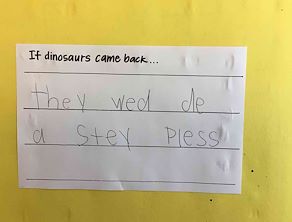 If dinosaurs came back...
they wed de
a stey pless